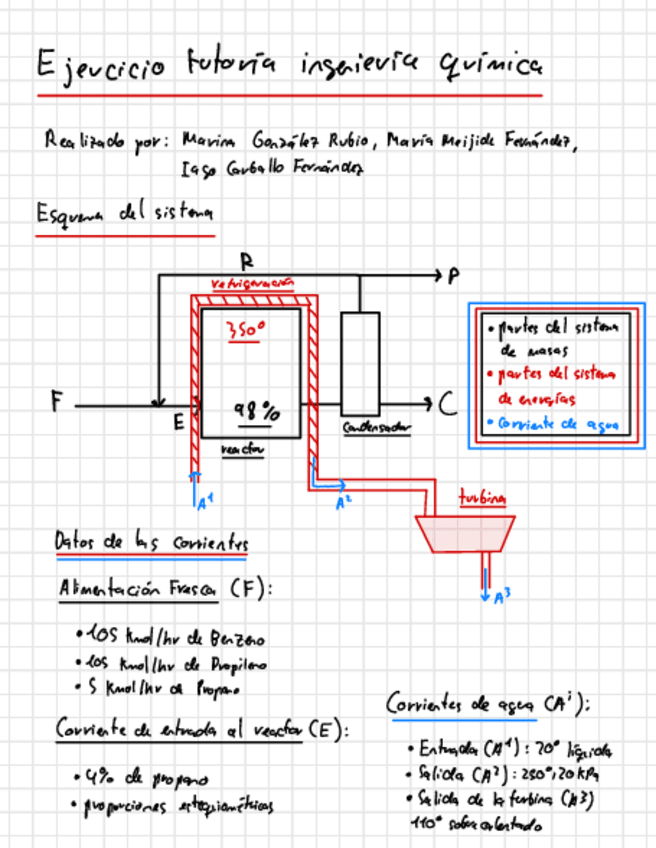 Ejercicio tutoría ingeniería química
Realizado por: Marina González Rubio, María Meijide Fernández,
Iago Carballo Fernández
Esquema del sistema
R
P
refrigeración
350º
F
E
98%
reactor
Condensador
C
• partes del sistema
de masas
• partes del sistema
de energías
• Corriente de agua
A¹
A²
turbina
A³
Datos de las corrientes
Alimentación Fresca (F):
• 105 Kmol/hr de Benzeno
• 105 Kmol/hr de Propileno
• 5 Kmol/hr de Propano
Corriente de entrada al reactor (E):
• 4% de propano
• proporciones estequiométricas
Corrientes de agua (Aⁱ):
• Entrada (A¹): 20º líquida
• Salida (A²): 250º, 20 kPa
• Salida de la turbina (A3)
110º sobrecalentado